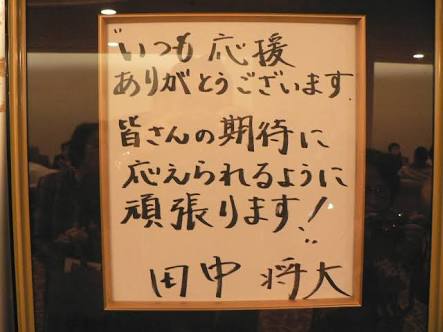 "いつも応援
ありがとうございます.
皆さんの期待に
応えられるように
頑張ります!"
田中将大